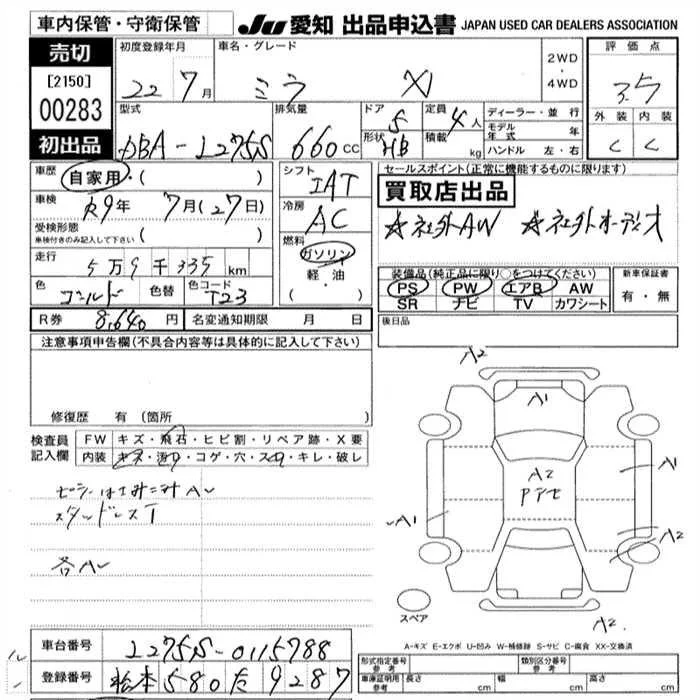 車内保管・守衛保管
JU 愛知 出品申込書 JAPAN USED CAR DEALERS ASSOCIATION
売切
[2150]
00283
初出品
初度登録年月
22 7月
車名・グレード
ミラ X
2WD
・
4WD
評価点
3.5
外装 内装
C C
型式
DBA-L275S
排気量
660cc
ドア 5
形状 HB
定員 4人
積載 kg
ディーラー・並行
モデル年式 年
ハンドル 左・右
車歴 自家用・( )
車検 R9年 7月(27日)
受検形態
車検付きのみ記入して下さい ( )
走行
5万9千335km
色 ゴールド 色替 色コード T23
シフト
IAT
冷房
AC
燃料
ガソリン
軽・油
( ・ )
セールスポイント(正常に機能するものに限ります)
買取店出品
☆社外AW ☆社外オーディオ
装備品(純正品に限り○をつけてください)
PS PW エアB AW
SR ナビ TV カワシート
新車保証書
有・無
R券 8,640円 名変通知期限 月 日
後日品
注意事項申告欄(不具合内容等は具体的に記入して下さい)
修復歴 有 (箇所
検査員記入欄
FW キズ・飛石・ヒビ割・リペア跡・X要
内装 キズ・汚れ・コゲ・穴・スレ・キレ・破レ
スタッドレスT
A2
A1
A2
A1
A1
A2
A2
スペア
A-キズ E-エクボ U-凹み W-補修跡 S-サビ C-腐食 XX-交換済
車台番号 L275S-0115788
登録番号 松本 580 た 9287
型式指定番号 参考
類別区分番号 参考
車庫証明用 参考 長さ cm 幅 cm 高さ cm